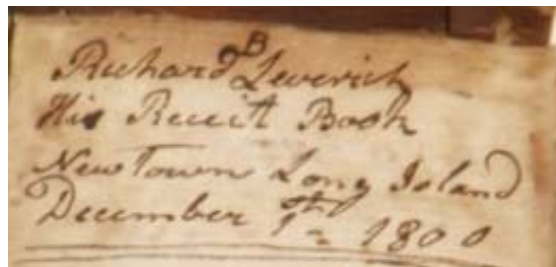 Richard B Leverich
His Receit Book
New Town Long Island
December 9th 1800